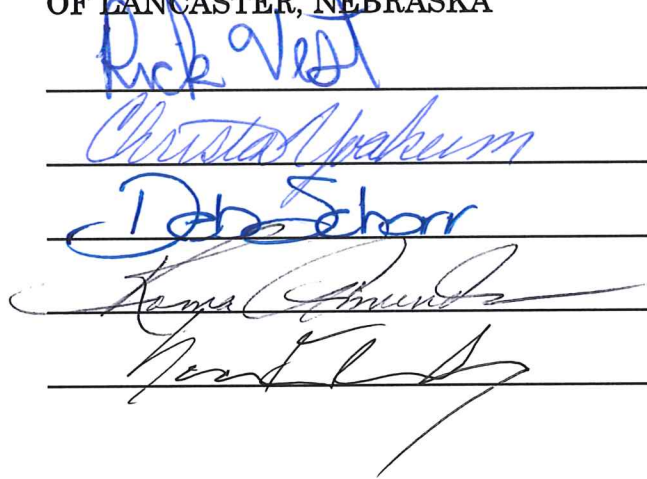 OF LANCASTER, NEBRASKA
Rick Vest
Christa Yoakum
Deb Schorr
Roma Amundson